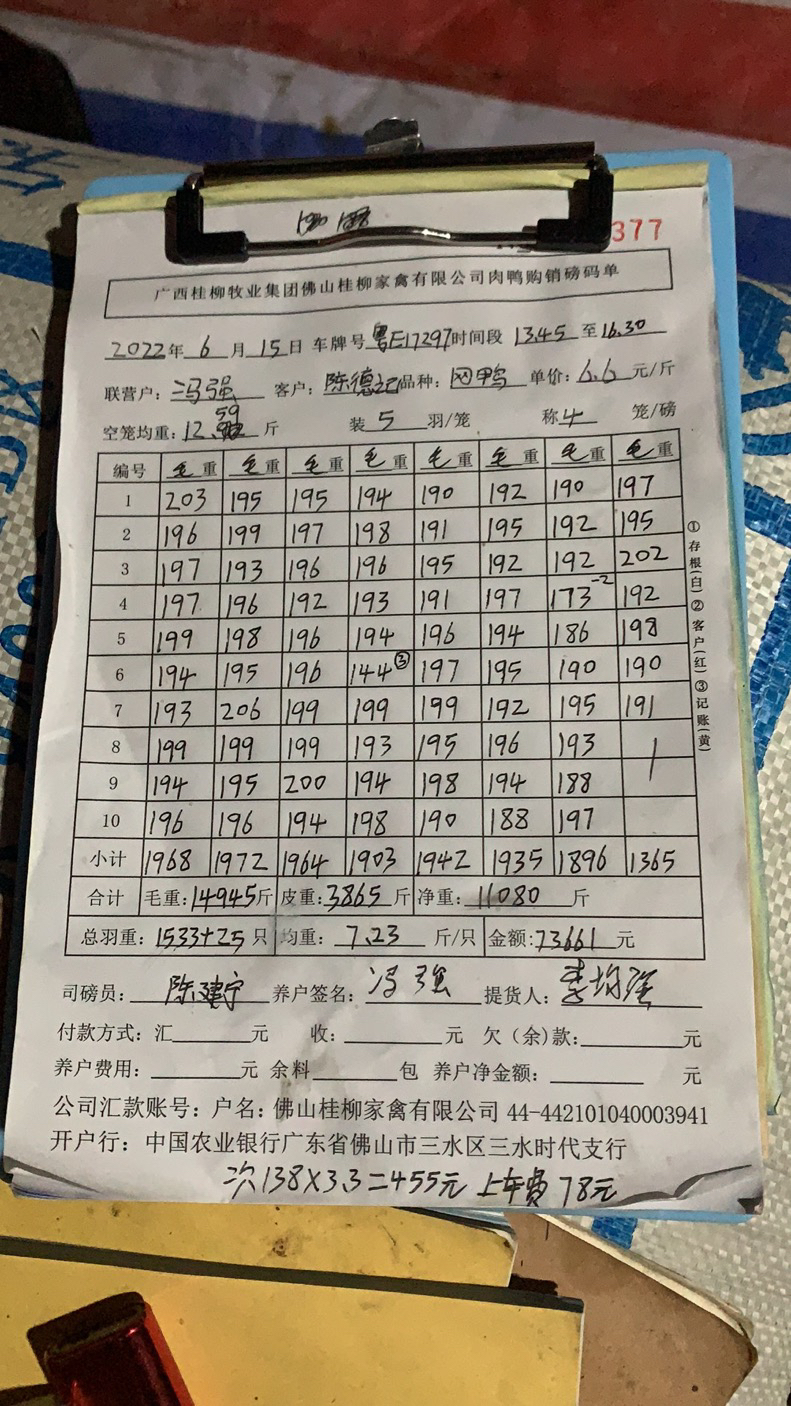 377
广西桂柳牧业集团佛山桂柳家禽有限公司肉鸭购销磅码单
2022年 6 月 15日 车牌号 粤E17297 时间段 13.45 至 16.30
联营户: 冯强 客户: 陈德记 品种: 网鸭 单价: 6.6 元/斤
空笼均重: 12.59 斤 装 5 羽/笼 称 4 笼/磅
编号 毛重 毛重 毛重 毛重 毛重 毛重 毛重 毛重
1 203 195 195 194 190 192 190 197
2 196 199 197 198 191 195 192 195
3 197 193 196 196 195 192 192 202
4 197 196 192 193 191 197 173-2 192
5 199 198 196 194 196 194 186 198
6 194 195 196 144③ 197 195 190 190
7 193 206 199 199 199 192 195 191
8 199 199 199 193 195 196 193
9 194 195 200 194 198 194 188
10 196 196 194 198 190 188 197
小计 1968 1972 1964 1903 1942 1935 1896 1365
合计 毛重: 14945斤 皮重: 3865 斤 净重: 11080 斤
总羽重: 1533+25 只 均重: 7.23 斤/只 金额: 73661 元
①存根(白)②客户(红)③记账(黄)
司磅员: 陈建宁 养户签名: 冯强 提货人: 李均强
付款方式: 汇 元 收: 元 欠(余)款: 元
养户费用: 元 余料 包 养户净金额: 元
公司汇款账号: 户名: 佛山桂柳家禽有限公司 44-442101040003941
开户行: 中国农业银行广东省佛山市三水区三水时代支行
次138×3.3=455元 上车费 78元